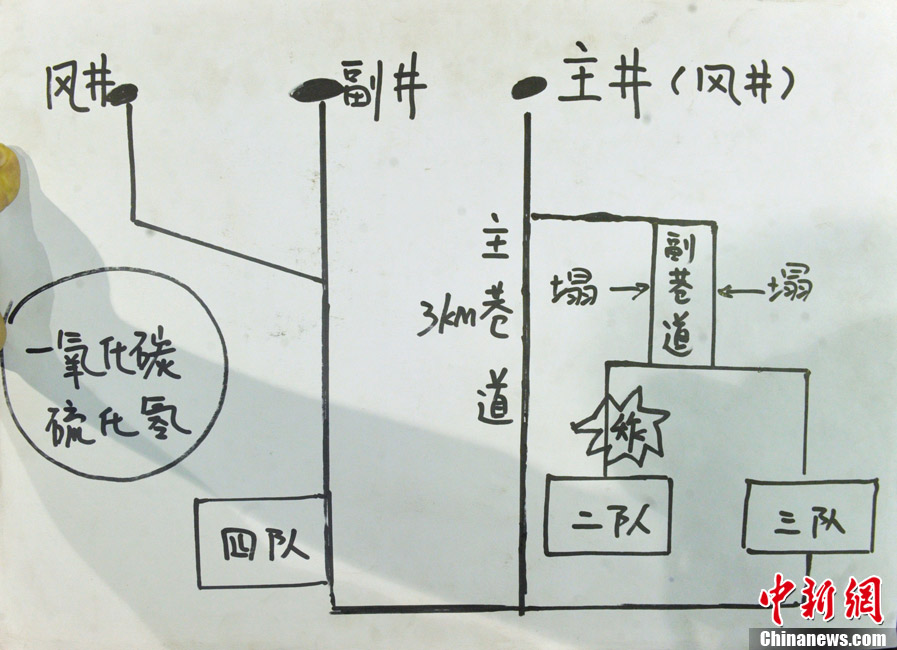 风井
副井
主井（风井）
主巷道
3km
副巷道
塌
塌
一氧化碳
硫化氢
炸
四队
二队
三队
中新網
Chinanews.com